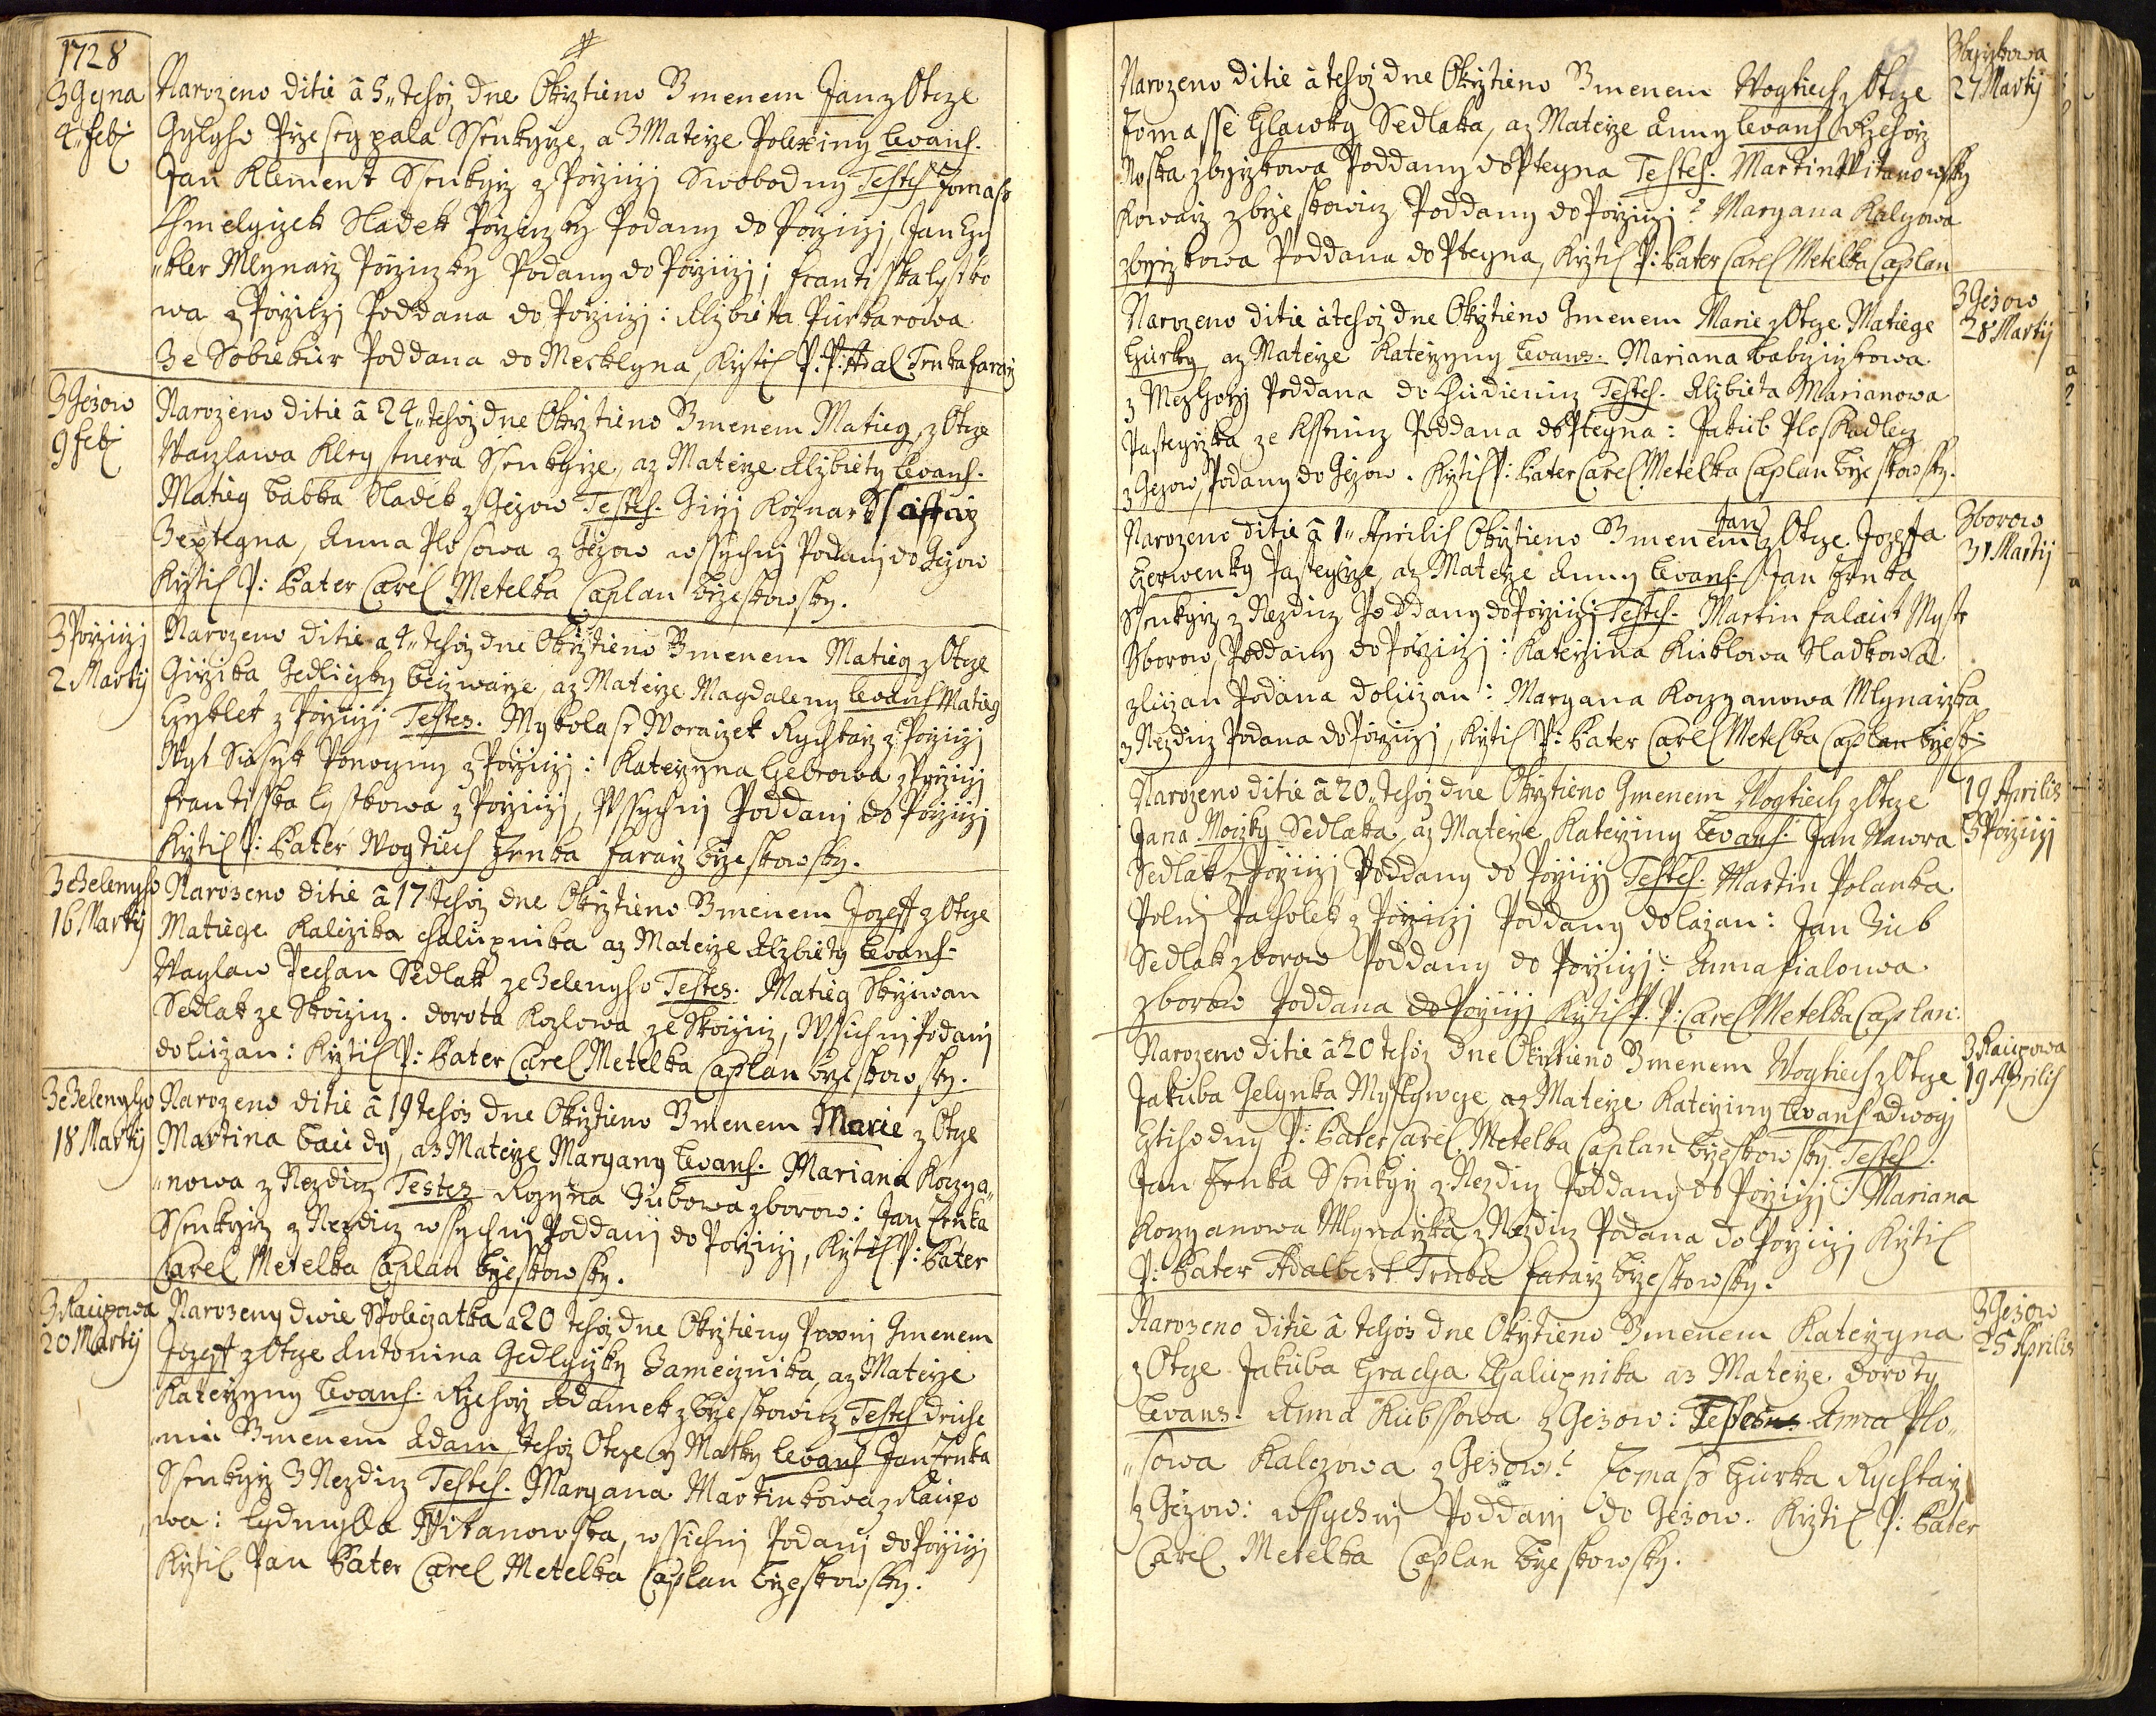 1728
3 Gegna
4 Febr
Narozeno ditie â 5 tehož dne Okrztieno Gmenem Jan z Otcze
Jan Klement Ssenkyrz z Porziczj Swobodny Testes Tomass
Chmelyczek Sladek Porziczky Podany do Porziczj, Jan Czy
kler Mlynarz Porziczky Podany do Porziczj; Frantisska Lystko
wa z Porziczj Poddana do Porziczj: Alzbieta Purkarowa
Ze Sobiekur Poddana do Mecklyna, Krztil P. P: Adal Trnka Faraz
3 Gezow
9 Feb
Narozeno ditie â 24 tehož dne Okrztieno Gmenem Matieg, z Otcze
Waczlawa Kleystnera Ssenkyrze, az Materze Alzbiety Levans.
Matieg Babka Sladek z Gezow Testes. Girzj
Anna Plosowa z Gezow wssychnj Podanj do Gezow
Krztil P: Pater Carel Metelka Caplan Brzeskowsky.
3 Porziczj
2 Martij
Narozeno ditie a 4 tehož dne Okrztieno Gmenem Matieg z Otcze
Girzika Gedliczky Beczwarze, az Materze Magdaleny Levans Matieg
Czykler z Porziczj Testes. Mykolass Woraczek Rychtarz z Porziczj
z Porziczj: Katerzyna z Porziczj
Frantisska Lystkowa z Porziczj, Wssychnj Poddanj do Porziczj
Krztil P: Pater Wogtiech Trnka Fararz Brzeskowsky.
Ze Zelenyho
16 Martij
Narozeno ditie â 17 tehož dne Okrztieno Gmenem Jozeff z Otcze
Matiege Kalczika Chalupnika az Materze Alzbiety Levans:
Waczlaw Pechan Sedlak ze Zelenyho Testes. Matieg Skrziwan
Sedlak ze Skorzicz. Dorota Kozlowa ze Skorzicz, Wssichnj Podanj
do Luzan: Krztil P: Pater Carel Metelka Caplan Brzeskowsky.
Ze Zelenyho
18 Martij
Narozeno ditie â 19 tehož dne Okrztieno Gmenem Marie z Otcze
Martina Baudy, az Materze Maryany Levans. Mariana Koczya
nowa z Nezdicz Testes Rozyna Zubowa z Borow: Jan Trnka
Ssenkyrz z Nezdicz wssychnj Poddanj do Porziczj, Krztil P: Pater
Carel Metelka Caplan Brzeskowsky.
3 Kaucowa
20 Martij
Narozeny dwie Pololeczatka a 20 tehož dne Okrztieny Prwnj Gmenem
Jozeff z Otcze Antonina Gedlyczky Zamecznika, az Materze
Katerzyny Levans. Rzehorz Adamek z Brzeskowicz Testes druhe
mu Gmenem Adam, tehož Otcze y Matky Levans Jan Trnka
Ssenkyrz z Nezdicz Testes. Maryana Martinkowa z Kauco
wa: Lydmylla Witanowska, wssichnj Podanj do Porziczj
Krztil Pan Pater Carel Metelka Caplan Brzeskowsky.
27 Martij
Narozeno ditie â tehož dne Okrztieno Gmenem Wogtiech z Otcze
Tomasse Hlawky Sedlaka, az Materze Anny Levans Rzehorz
Noska Poddany do Ptegna Testes. Martin Witanowsky
Kowarz z Brzeskowicz Poddany do Porziczj: Maryana Kalyowa
Poddana do Ptegna, Krztil P: Pater Carel Metelka Caplan
3 Gezow
28 Martij
Narozeno ditie â tehož dne Okrztieno Gmenem Marie z Otcze Matiege
Hurky az Materze Katerzyny Levans. Mariana
z Mezhorzj Poddana do Chudienicz Testes. Alzbieta Marianowa
Pasteyrzka ze Poddana do Ptegna: Jakub Ploskadlecz
z Gezow, Podany do Gezow. Krztil P: Pater Carel Metelka Caplan Brzeskowsky.
3 Borow
31 Martij
Narozeno ditie â 1 Aprilis Okrztieno Gmenem Jan z Otcze Jozeffa
Czerwenky Pasteyrze, az Materze Anny Levans Jan Trnka
Ssenkyrz z Nezdicz Poddany do Porziczj Testes. Martin
Borow, Poddany do Porziczj: Katerzina Kuklowa Sladkowa
z Luzan Podana do Luzan: Maryana Koczyanowa Mlynarzka
z Nezdicz Podana do Porziczj, Krztil P: Pater Carel Metelka Caplan Brzesk:
19 Aprilis
3 Porziczj
Narozeno ditie â 20 tehož dne Okrztieno Gmenem Wogtiech z Otcze
Jana Moczky Sedlaka, az Materze Katerziny Levans. Jan Wawra
Sedlak z Porziczj Poddany do Porziczj Testes. Martin Polanka
Polnj Pacholek z Porziczj Poddany do Lazan: Jan Zub
Sedlak z Borow Poddany do Porziczj: Anna Fialowa
z Borow Poddana do Porziczj Krztil P. P: Carel Metelka Caplan:
3 Kaucowa
19 Aprilis
Narozeno ditie â 20 tehož dne Okrztieno Gmenem Wogtiech z Otcze
Jakuba Gelynka Myslywcze, az Materze Katerziny Levans
P: Pater Carel Metelka Caplan Brzeskowsky Testes.
Jan Trnka Ssenkyrz z Nezdicz Poddany do Porziczj: Mariana
Koczyanowa Mlynarzka z Nezdicz Podana do Porziczj Krztil
P: Pater Adalbert Trnka Fararz Brzeskowsky.
3 Gezow
25 Aprilis
Narozeno ditie â tehož dne Okrztieno Gmenem Katerzyna
z Otcze Jakuba Hracha Chalupnika az Materze Doroty
Levans. Anna Kubssowa z Gezow: Testes Anna Plo
sowa Kalczowa z Gezow: Tomass Hurka Rychtarz
z Gezow: wssychnj Poddanj do Gezow. Krztil P: Pater
Carel Metelka Caplan Brzeskowsky.